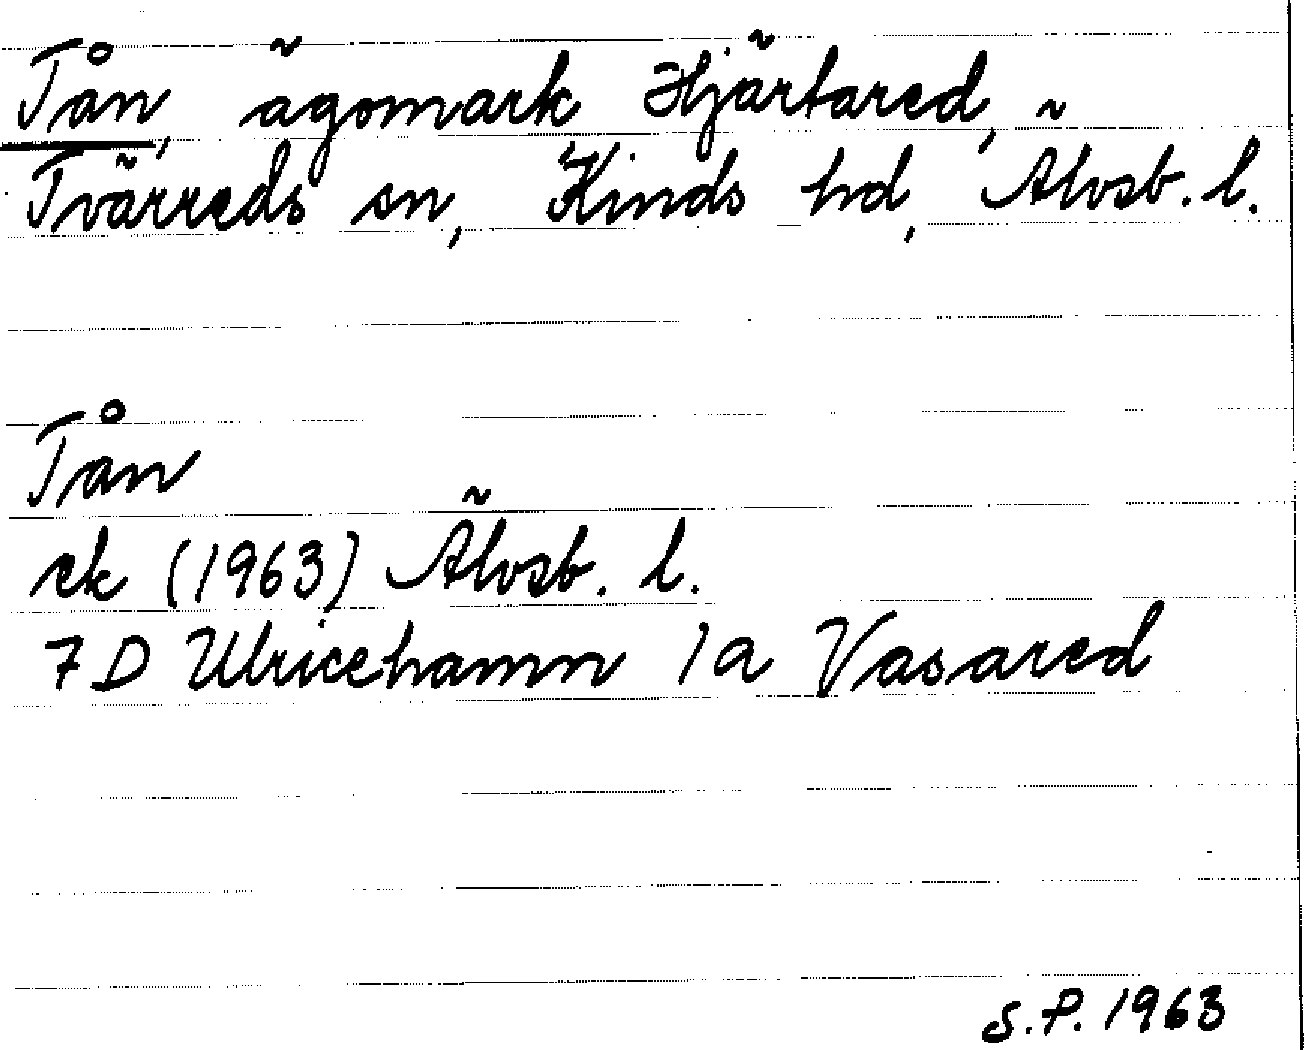 Tån, ägomark Hjärtared,
Tvärreds sn, Kinds hd, Älvsb. l.
Tån
ek (1963) Älvsb. l.
7 D Ulricehamn 1a Vasared
S.P. 1963